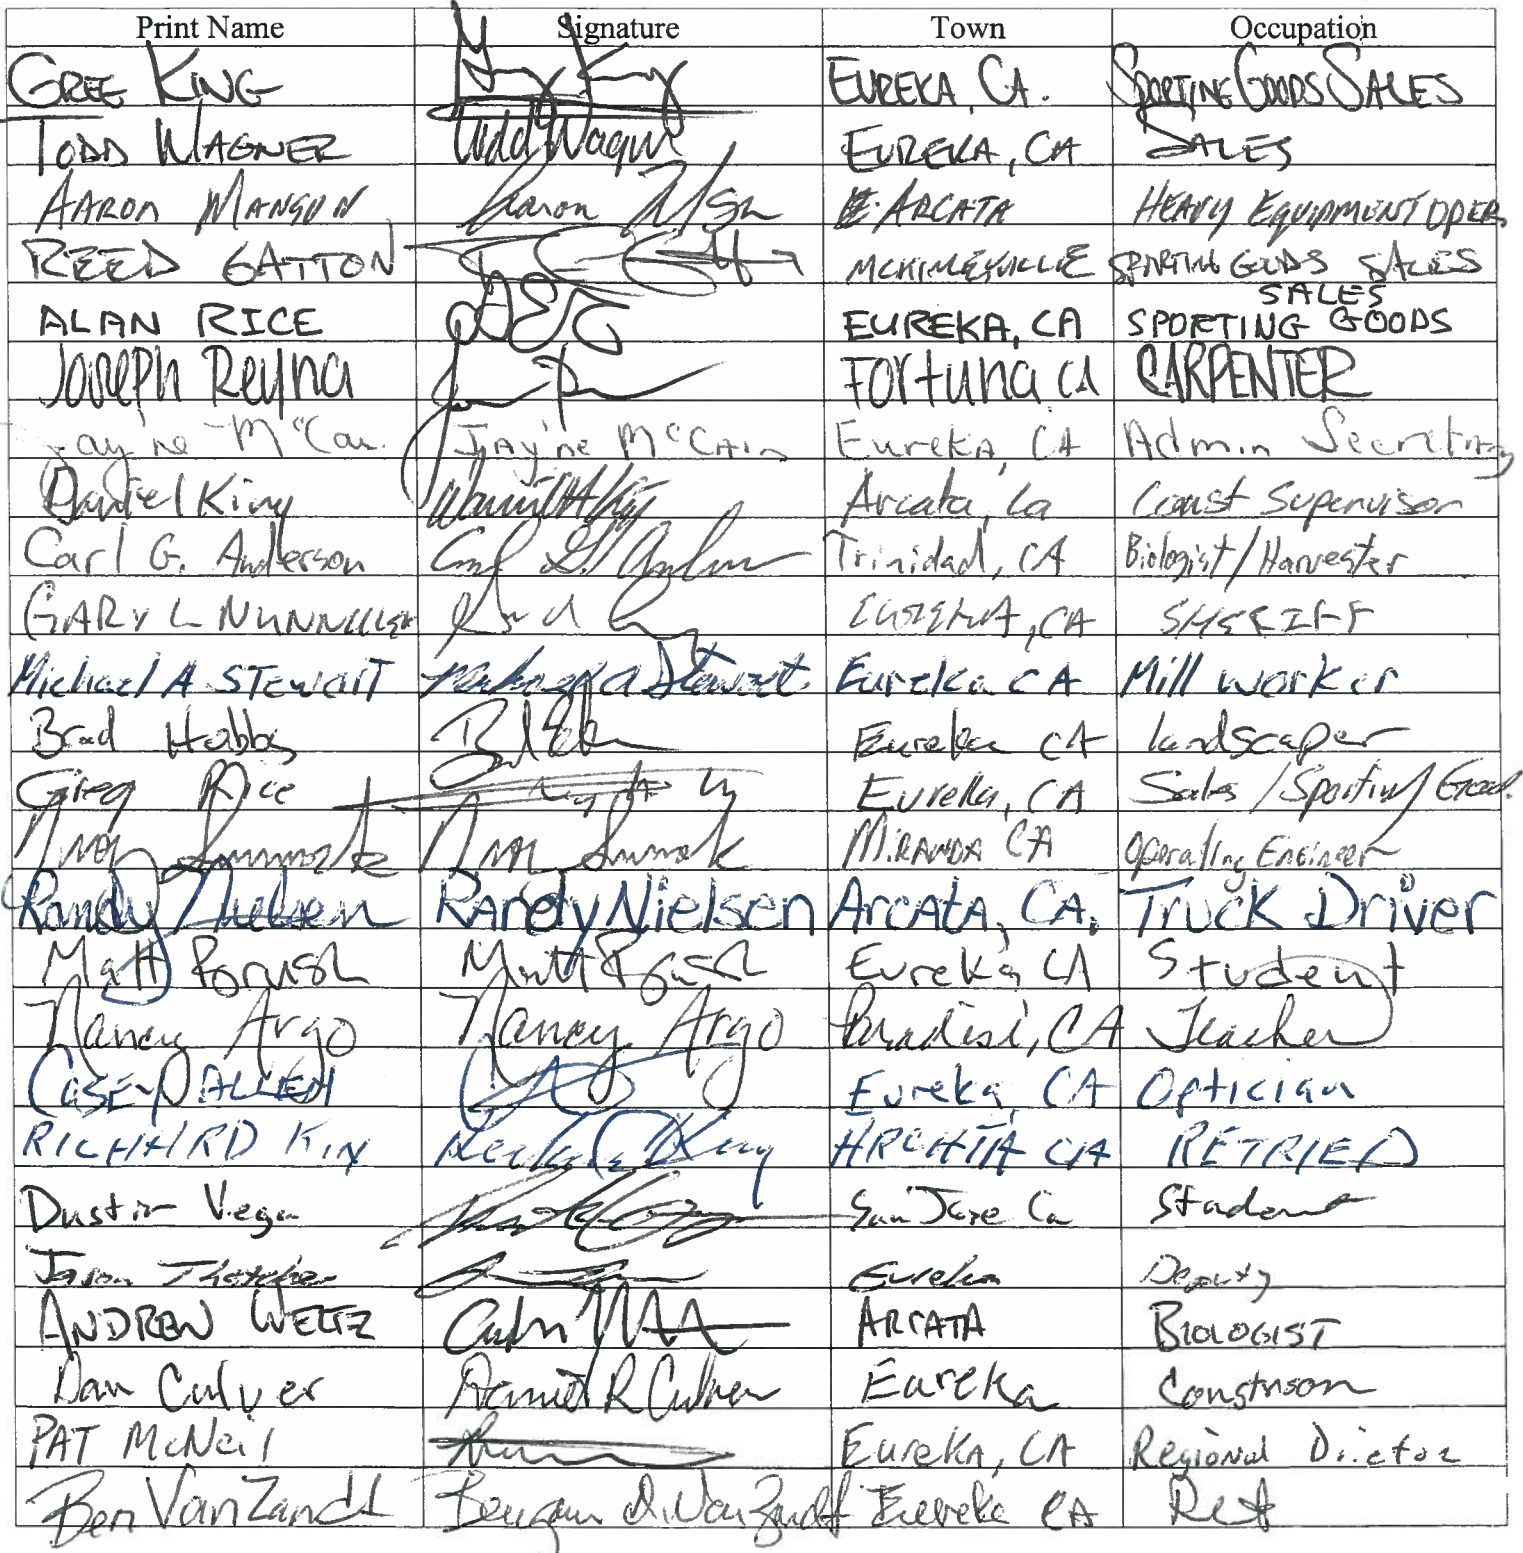 Print Name Signature Town Occupation
GREG KING Greg King EUREKA, CA. SPORTING GOODS SALES
TODD WAGNER Todd Wagner EUREKA, CA SALES
AARON MANGUN Aaron ARCATA HEAVY EQUIPMENT OPER
REED GATTON MCKINLEYVILLE SPORTING GOODS SALES
ALAN RICE EUREKA, CA SPORTING GOODS SALES
Joseph Reyna Fortuna CA CARPENTER
Jayne McCain Jayne McCain Eureka, CA Admin Secretary
Daniel King Arcata, Ca Const Supervisor
Carl G. Anderson Carl G. Anderson Trinidad, CA Biologist/Harvester
GARY L EUREKA, CA SHERIFF
Michael A STEWART Michael A Stewart Eureka CA Mill worker
Brad Hobbs Eureka CA landscaper
Greg Rice Eureka, CA Sales / Sporting Good.
MIRANDA CA Operating Engineer
Randy Nielsen Randy Nielsen Arcata, CA. Truck Driver
Matt Brush Matt Brush Eureka CA Student
Nancy Argo Nancy Argo Paradise, CA Teacher
CASEY ALLEN Eureka, CA Optician
RICHARD KING King ARCATA CA RETRIED
Dustin Vega San Jose Ca Student
Jason Thatcher Eureka Deputy
ANDREW WELTZ ARCATA BIOLOGIST
Dan Culver Daniel R Culver Eureka
PAT McNeil Eureka, CA Regional Director
Ben VanZandt VanZandt Eureka CA Ret